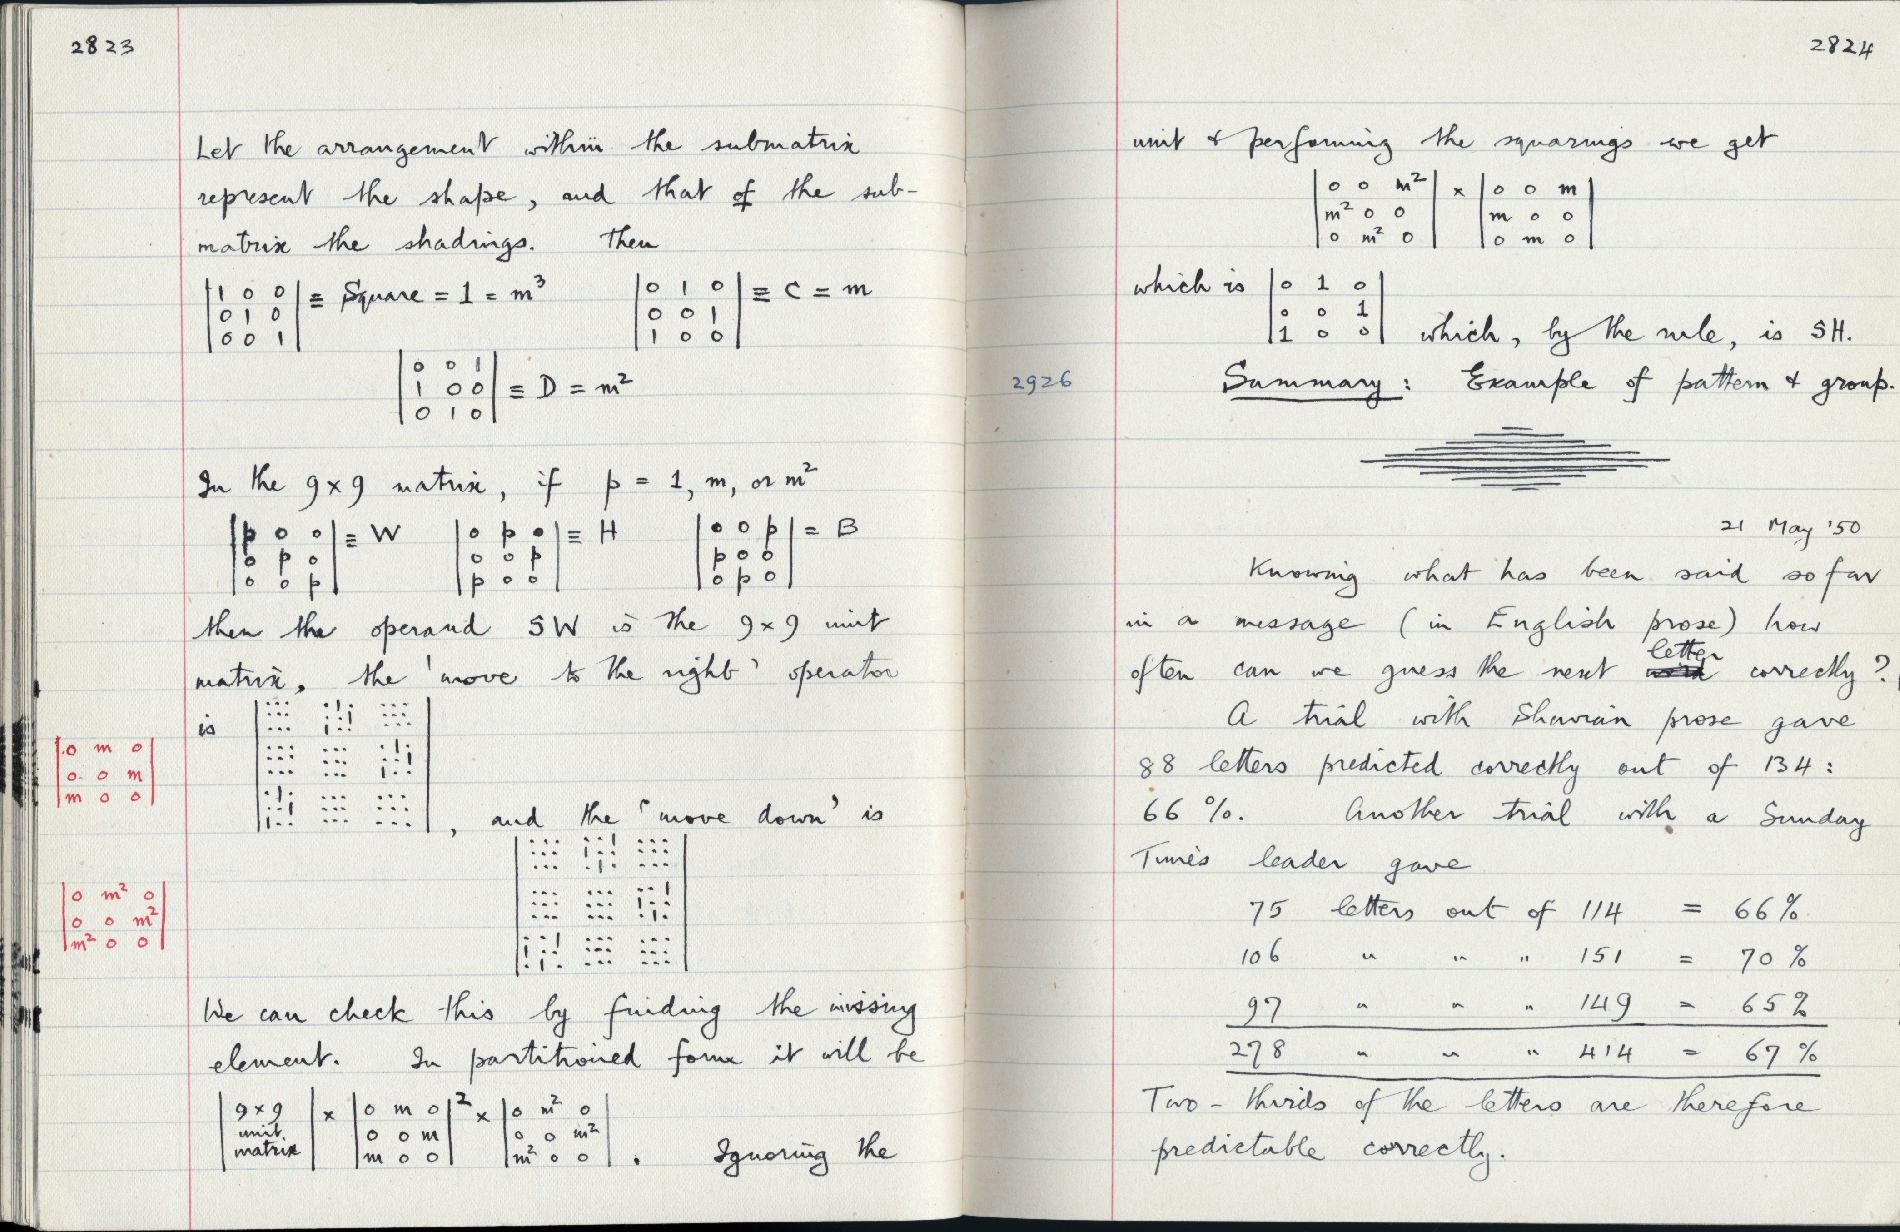 2823
Let the arrangement within the submatrix
represent the shape, and that of the sub-
matrix the shadings. Then
|1 0 0| ≡ Square = 1 = m³ |0 1 0| ≡ C = m
|0 1 0| |0 0 1|
|0 0 1| |1 0 0|
|0 0 1|
|1 0 0| ≡ D = m²
|0 1 0|
In the 9×9 matrix, if p = 1, m, or m²
|p 0 0| ≡ W |0 p 0| ≡ H |0 0 p| = B
|0 p 0| |0 0 p| |p 0 0|
|0 0 p| |p 0 0| |0 p 0|
then the operand SW is the 9×9 unit
matrix, the 'move to the right' operator
is
|0 m 0|
|0 0 m|
|m 0 0|
, and the 'move down' is
|0 m² 0|
|0 0 m²|
|m² 0 0|
We can check this by finding the missing
element. In partitioned form it will be
|9×9| × |0 m 0|² × |0 m² 0|
|unit| |0 0 m| |0 0 m²|
|matrix| |m 0 0| |m² 0 0| . Ignoring the
2824
unit & performing the squarings we get
|0 0 m²| × |0 0 m|
|m² 0 0| |m 0 0|
|0 m² 0| |0 m 0|
which is |0 1 0|
|0 0 1|
|1 0 0| which, by the rule, is SH.
2926 Summary: Example of pattern & group.
21 May '50
Knowing what has been said so far
in a message (in English prose) how
letter
often can we guess the next correctly?
A trial with Shavian prose gave
88 letters predicted correctly out of 134:
66%. Another trial with a Sunday
Times leader gave
75 letters out of 114 = 66%
106 " " " 151 = 70%
97 " " " 149 = 65%
278 " " " 414 = 67%
Two-thirds of the letters are therefore
predictable correctly.